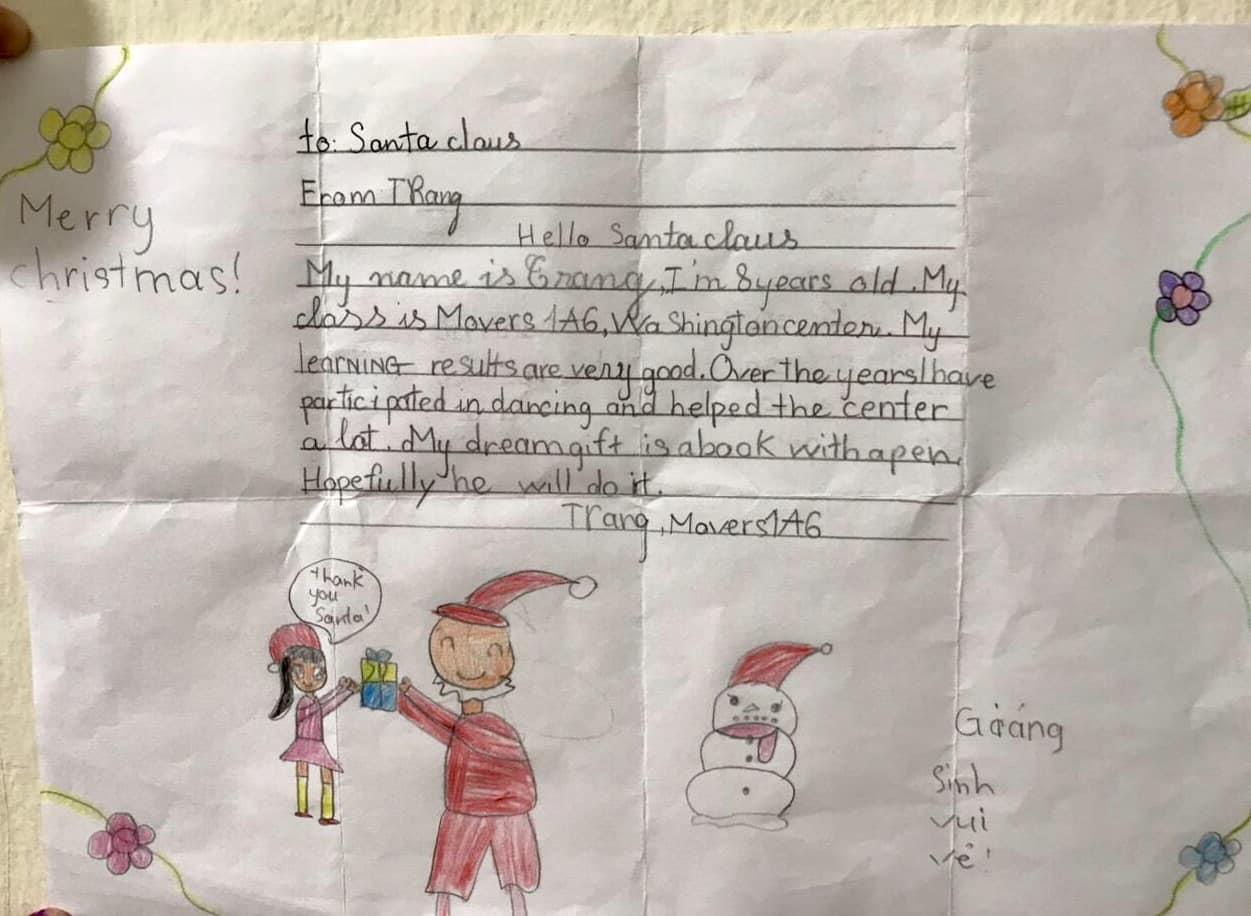 to: Santa claus
From Trang
Hello Santa claus
Merry
christmas!
My name is Trang, I'm 8 years old. My
class is Movers 1A6, Washington center. My
learNING results are very good. Over the years I have
participated in dancing and helped the center
a lot. My dream gift is a book with a pen.
Hopefully he will do it.
Trang, Movers 1A6
thank
you
Santa!
Giáng
Sinh
vui
vẻ!